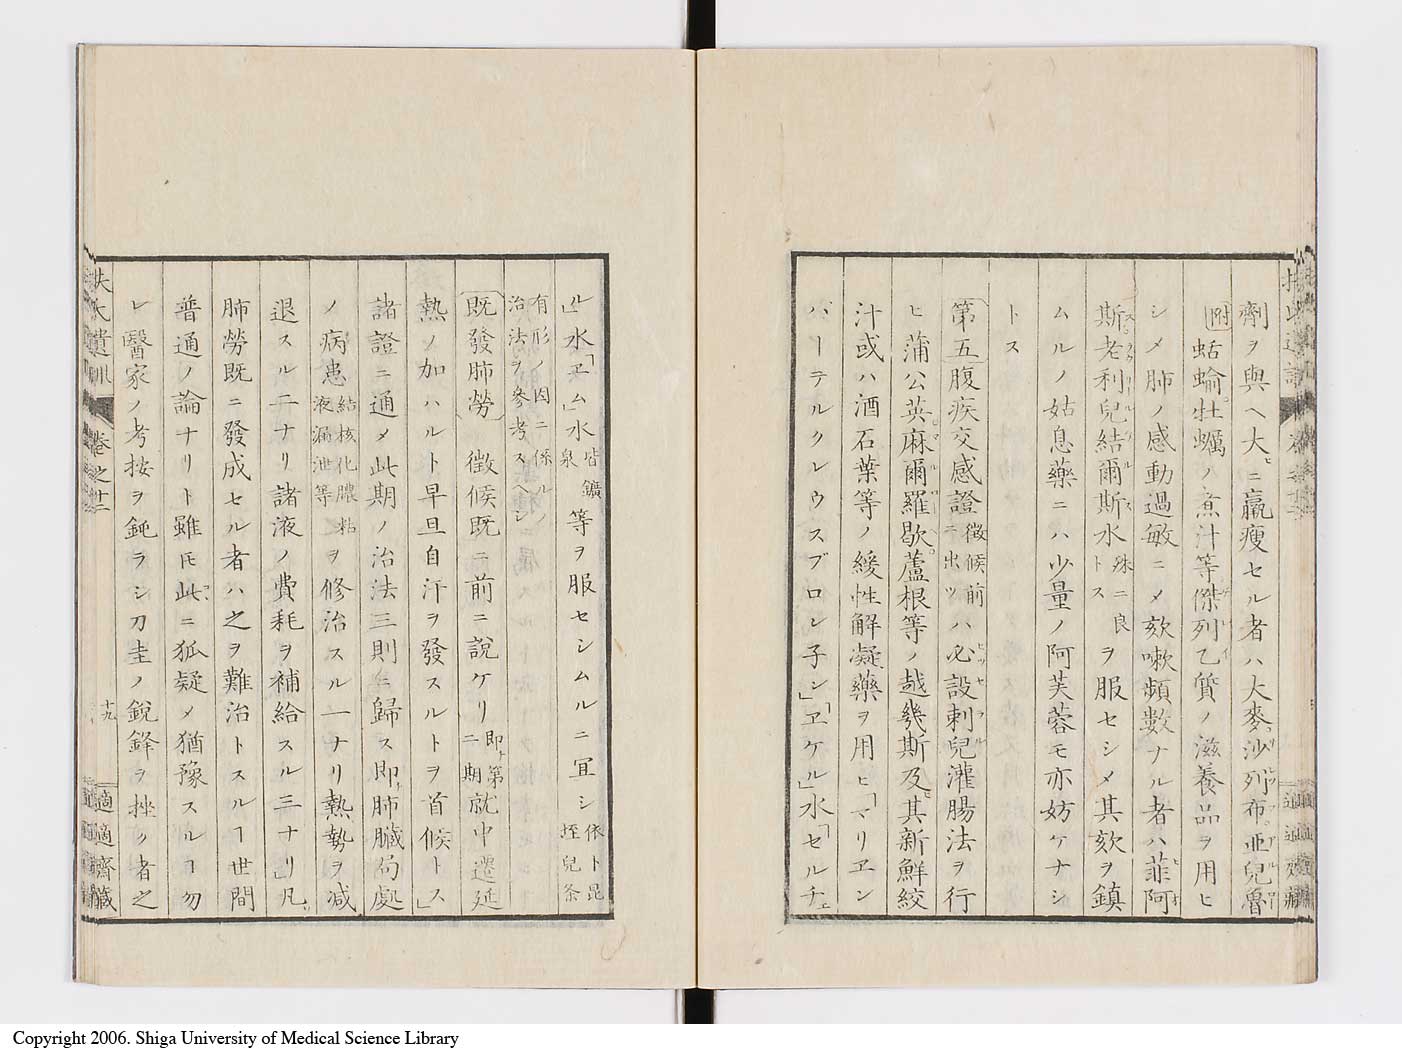 劑ヲ與ヘ大ニ羸瘦セル者ハ大麥沙列布亞兒魯
附蛞蝓牡蠣ノ煮汁等傑列乙質ノ滋養品ヲ用ヒ
シメ肺ノ感動過敏ニメ欬嗽頻數ナル者ハ菲阿
斯老利兒結爾斯水殊ニ良トスヲ服セシメ其欬ヲ鎮
ムルノ姑息藥ニハ少量ノ阿芙蓉モ亦妨ケナシ
トス
第五腹疾交感證徵候前ニ出ツハ必設剌兒灌腸法ヲ行
ヒ蒲公英麻爾羅歇蘆根等ノ越幾斯及其新鮮絞
汁或ハ酒石葉等ノ緩性解凝藥ヲ用ヒ「マリヱン
バーテルクレウスブロン子ン」「ヱケル」水「セルチェ
ル」水「ヱム」水皆鑛泉等ヲ服セシムルニ宜シ依卜昆垤兒条
有形ノ因ニ係ル治法ヲ參考スヘシ
既發肺勞徵候既ニ前ニ說ケリ即第二期就中遷延
熱ノ加ハルト早旦自汗ヲ發スルトヲ首候トス」
諸證ニ通メ此期ノ治法三則ニ歸ス即肺臟局處
ノ病患結核化膿粘液漏泄等ヲ修治スル一ナリ熱勢ヲ減
退スル二ナリ諸液ノ費耗ヲ補給スル三ナリ」凡
肺勞既ニ發成セル者ハ之ヲ難治トスルヿ世間
普通ノ論ナリト雖𪜈此ニ狐疑メ猶豫スルヿ勿
レ醫家ノ考按ヲ鈍ラシ刀圭ノ銳鋒ヲ挫ク者之
扶氏遺訓 卷之十二 十九 適適齋藏
Copyright 2006. Shiga University of Medical Science Library